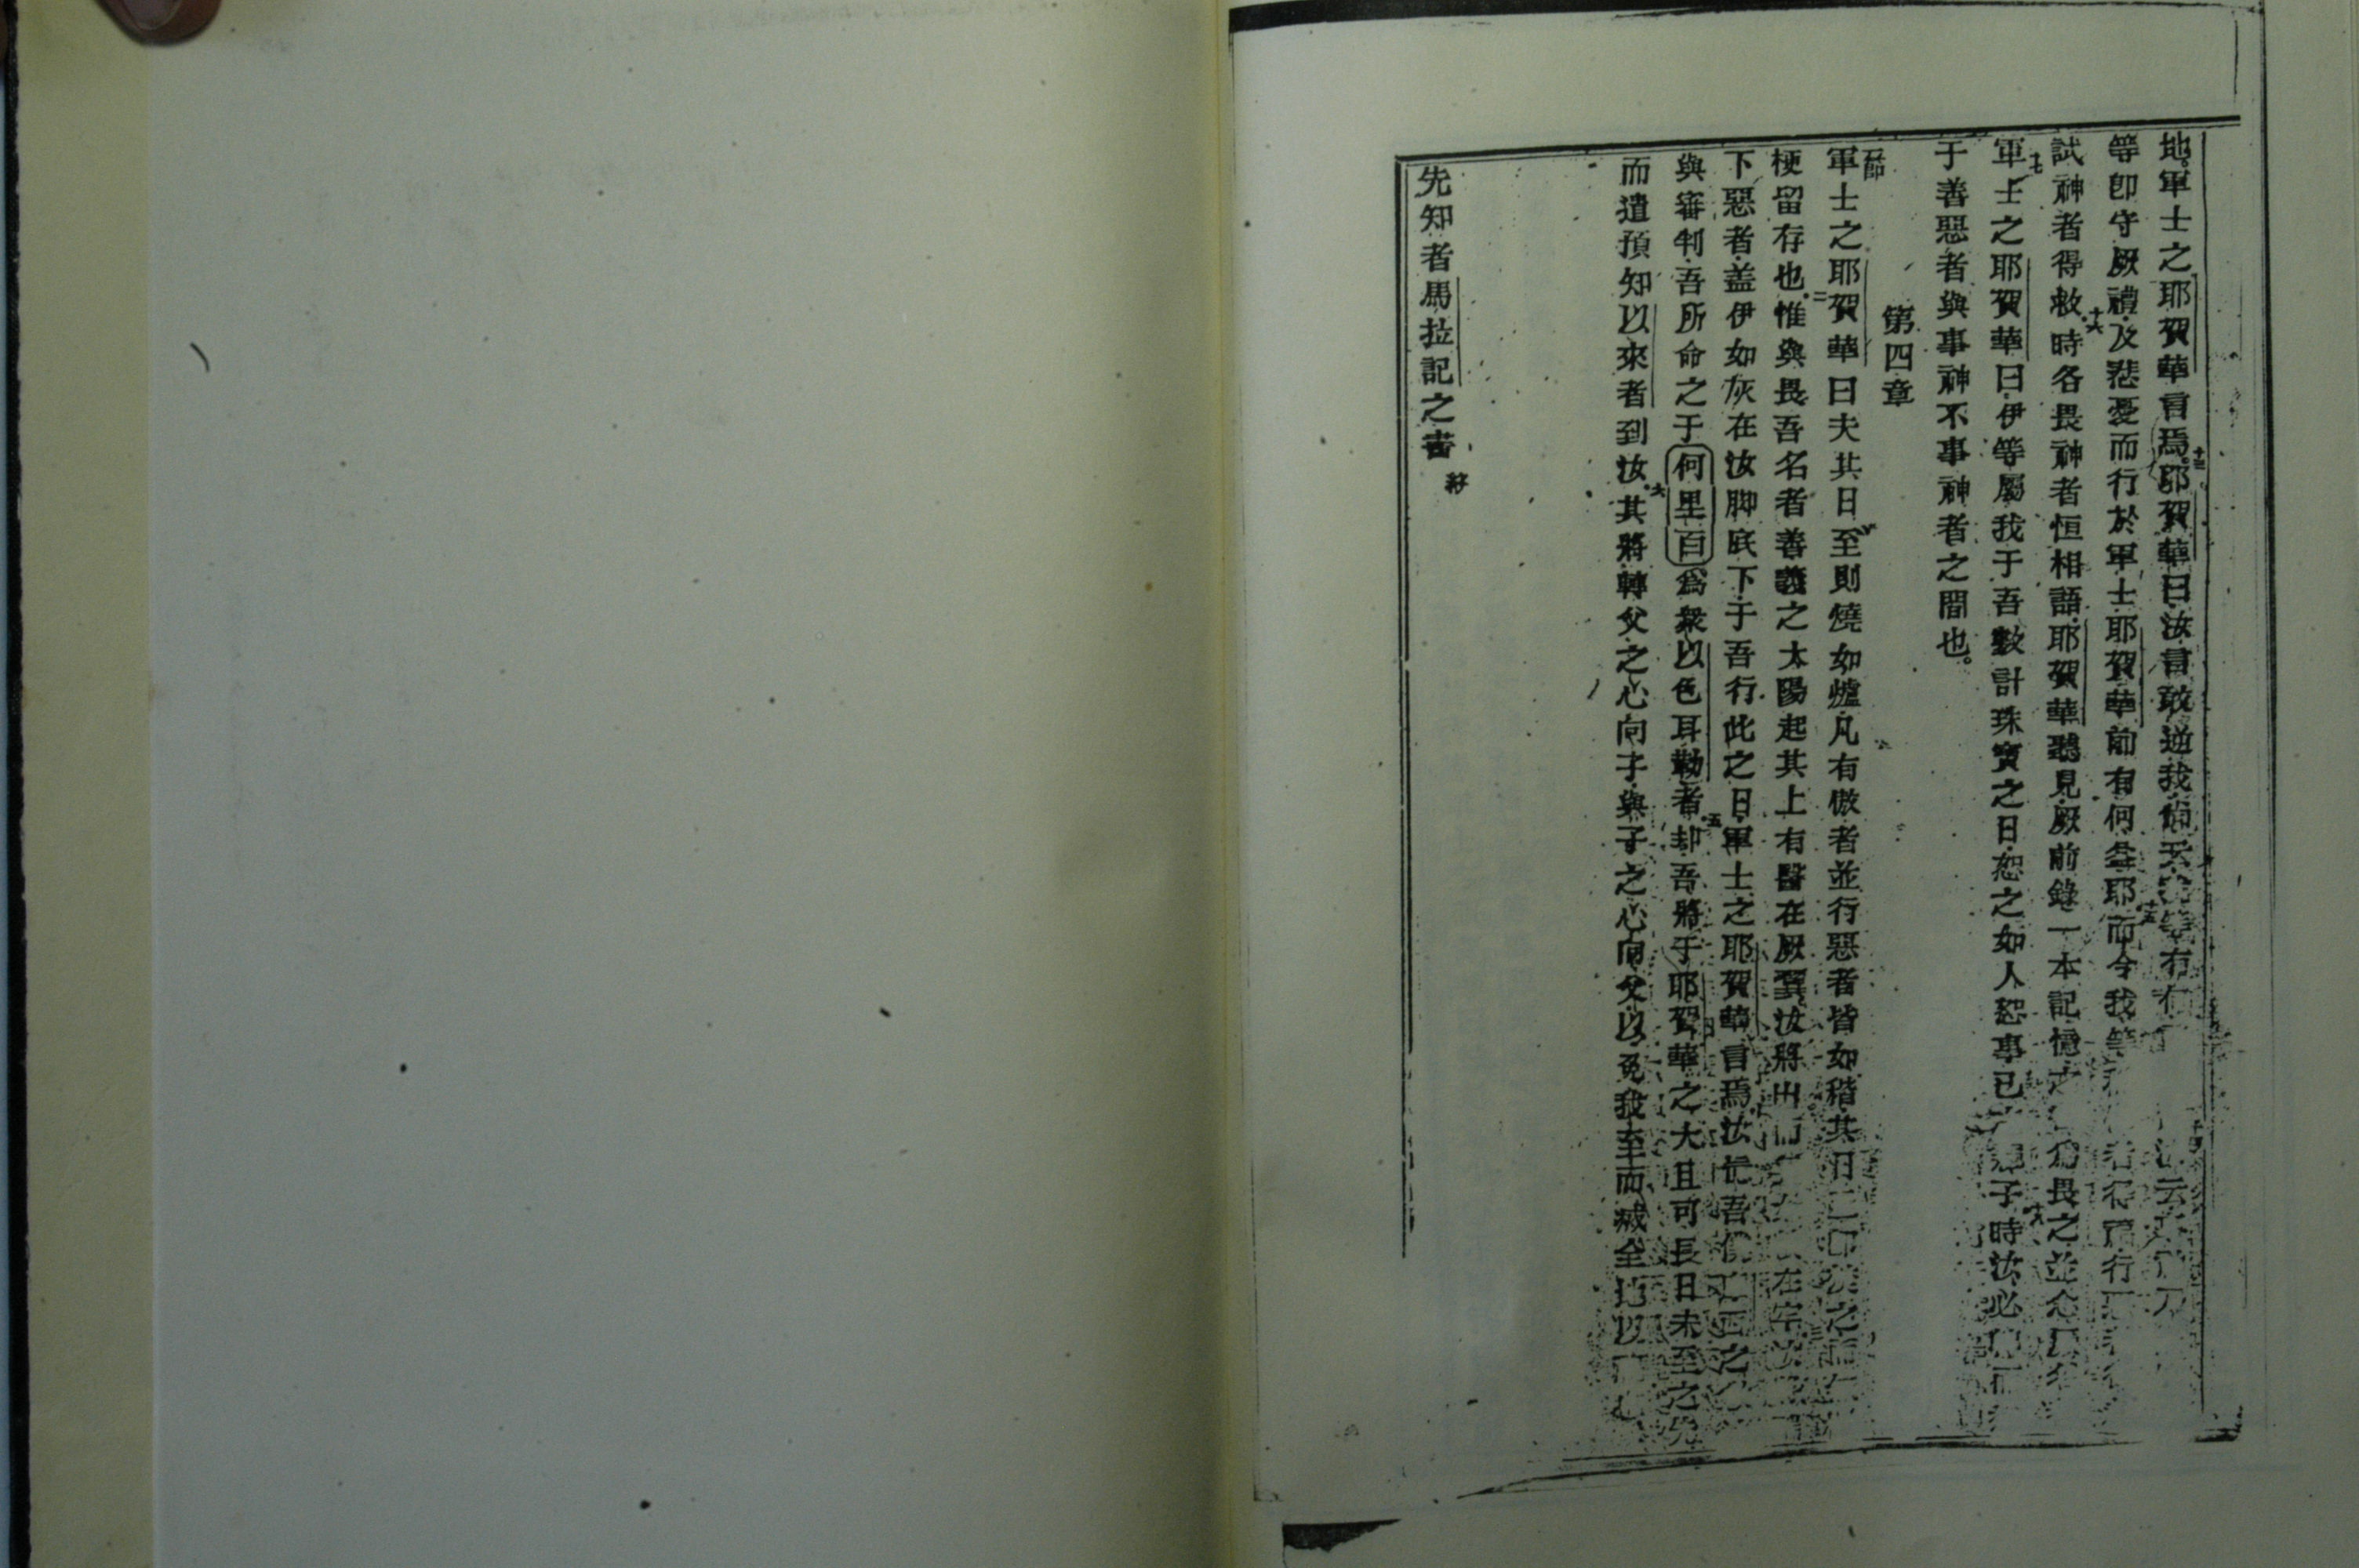 地軍士之耶賀華言焉十三耶賀華曰汝言敢逆我 等有 十四 云
等卽守厥禮及悲憂而行於軍士耶賀華前有何益耶十五而今我等 行
試神者得救時十六各畏神者恒相語耶賀華聽見厥前錄一本記憶 爲畏之並念
十七軍士之耶賀華曰伊等屬我于吾數計珠寶之日恕之如人恕事己 子時十八汝必
于善惡者與事神不事神者之間也
第四章
一節軍士之耶賀華曰夫其日至則燒如爐凡有傲者並行惡者皆如稭其日 之
梗留存也二惟與畏吾名者善義之太陽起其上有醫在厥翼汝將出 在牢
下惡者蓋伊如灰在汝脚底下于吾行此之日軍士之耶賀華言焉四汝 吾 西之
與審判吾所命之于何里百爲衆以色耳勒者五却吾將于耶賀華之大且可長日未至之先
而遣預知以來者到汝六其將轉父之心向子與子之心向父以免我至而滅全地以
先知者馬拉記之書 終